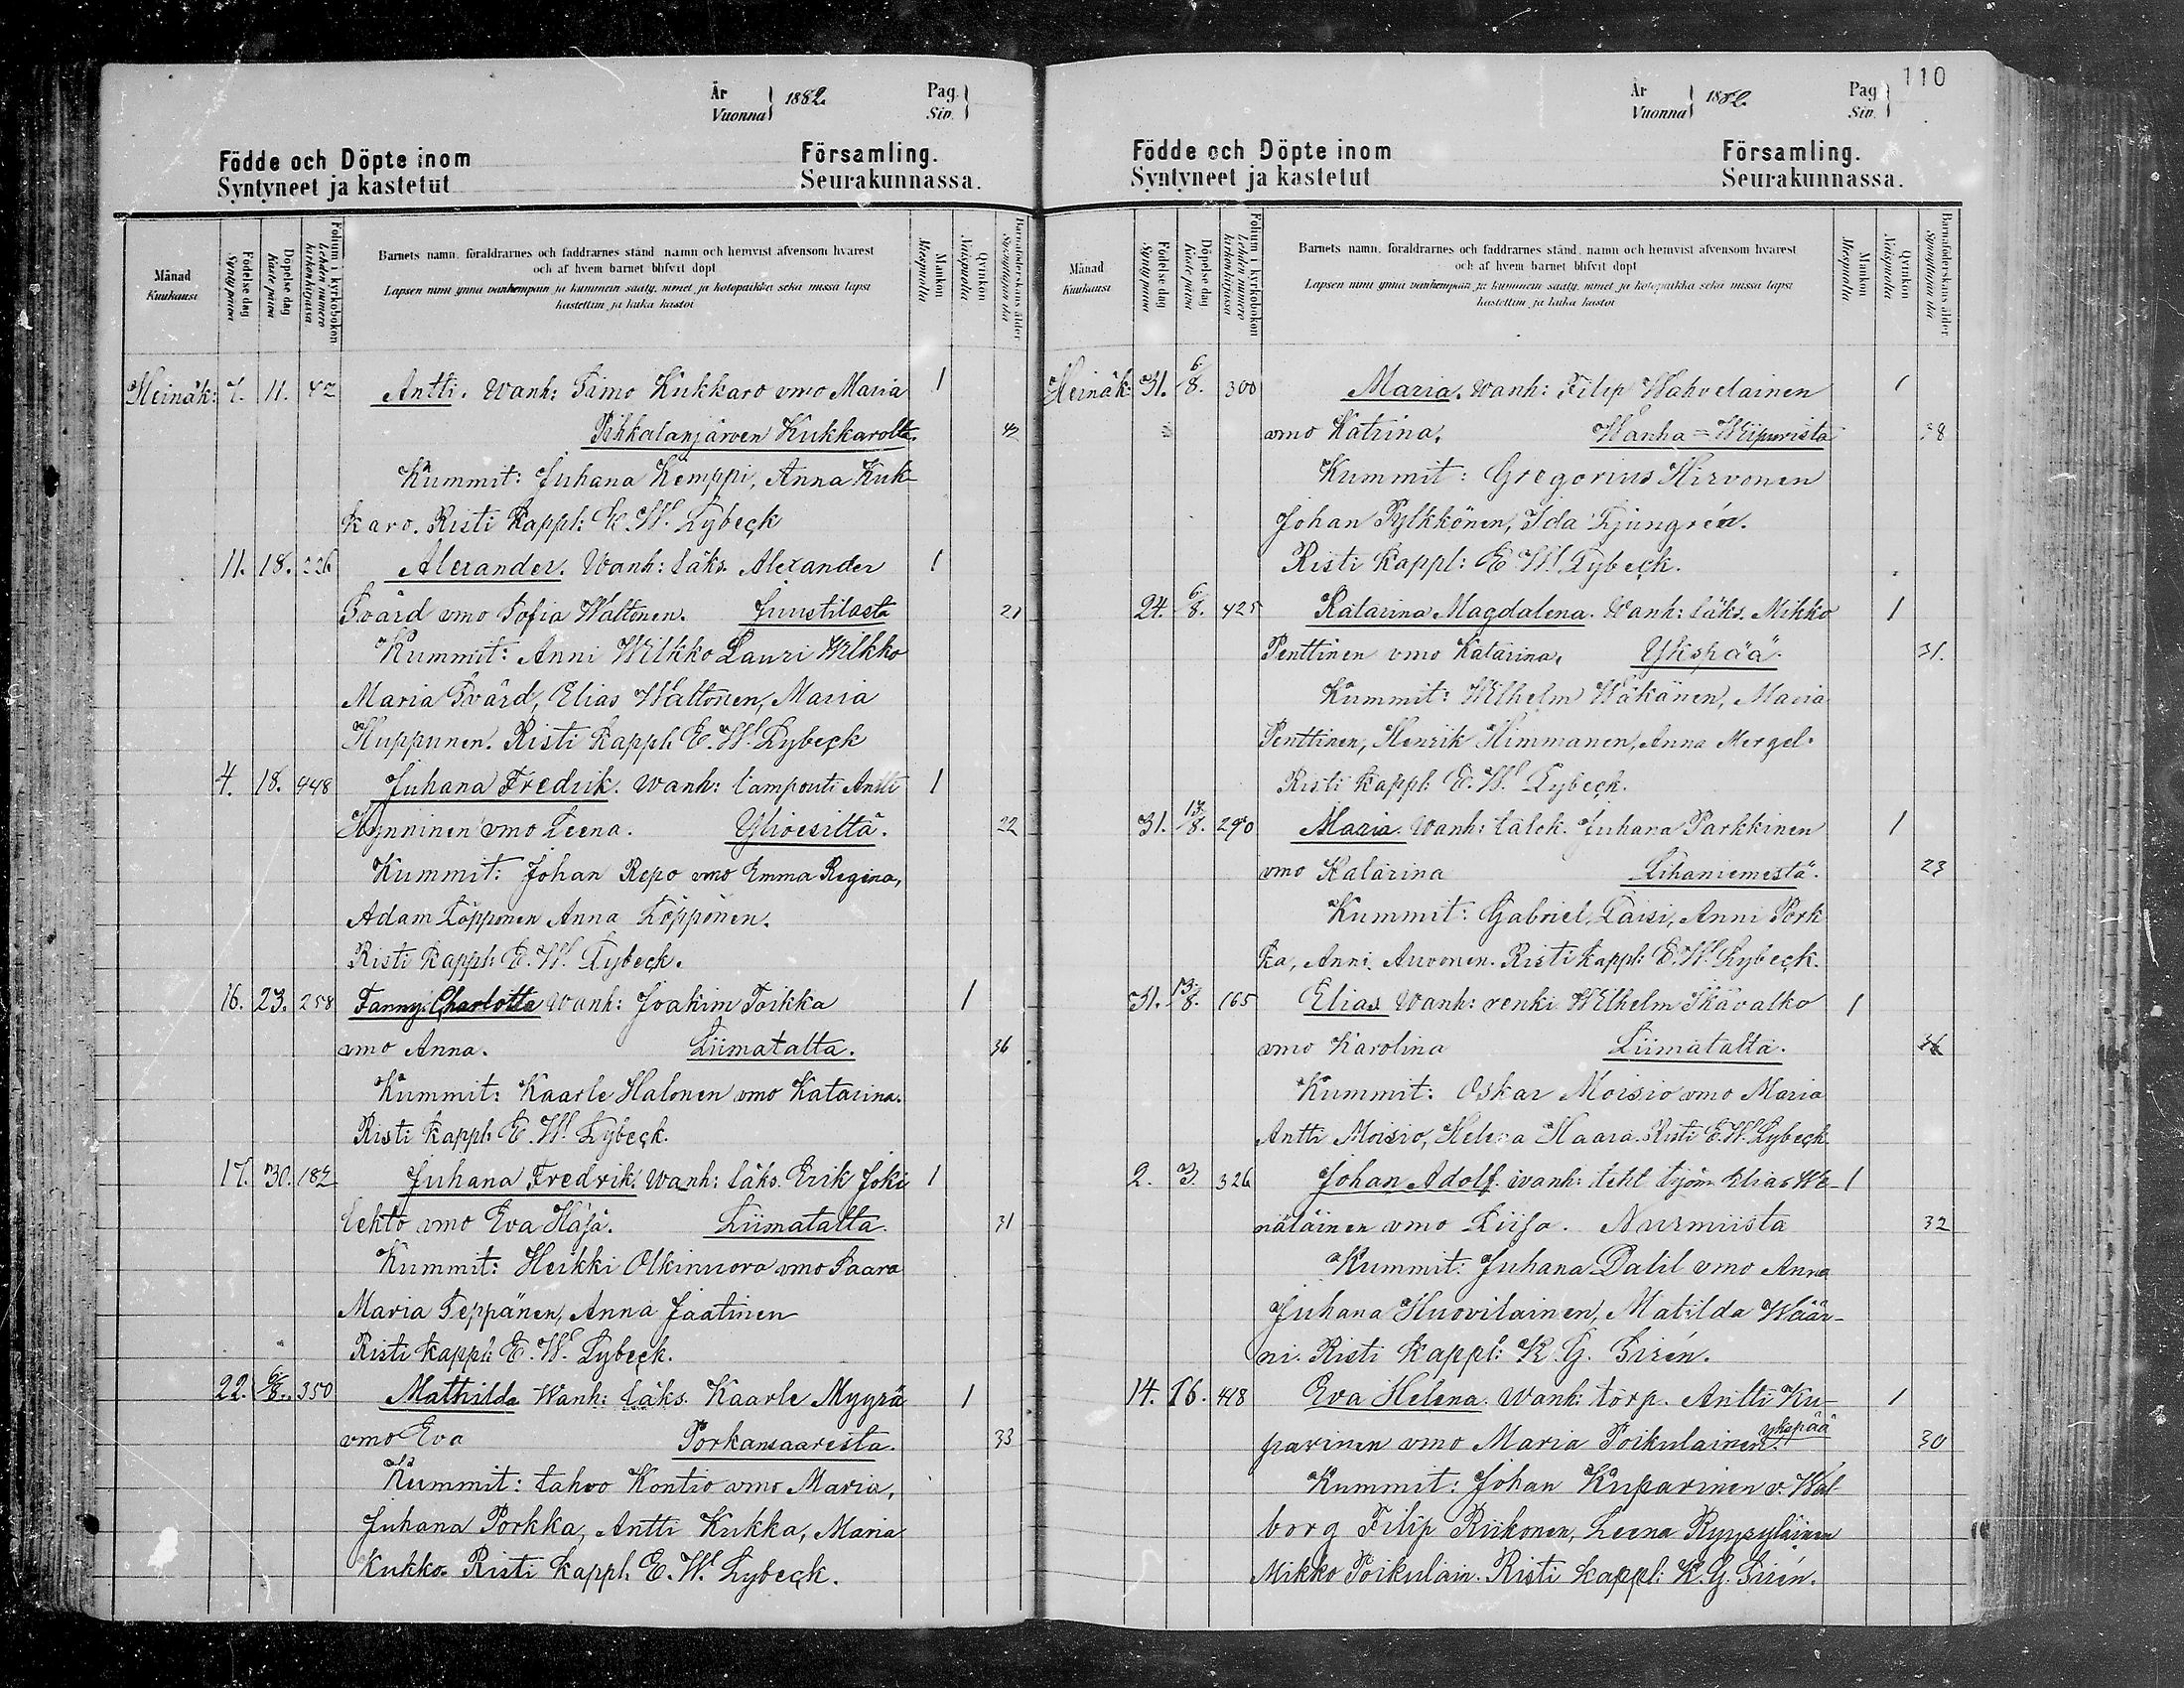 År
Vuonna } 1882.
Pag.
Siv. }
Födde och Döpte inom Församling.
Syntyneet ja kastetut Seurakunnassa.
Månad
Kuukausi
Födelse dag
Synty päivä
Döpelse dag
Kaste päivä
Folium i kyrkoboken
Lehden numero kirkonkirjassa
Barnets namn, föräldrarnes och faddrarnes stånd, namn och hemvist äfvensom hvarest
och af hvem barnet blifvit döpt
Lapsen nimi ynnä vanhempain ja kummein sääty, nimet ja kotopaikka sekä missä lapsi
kastettiin ja kuka kastoi
Mankön
Miespuolia
Qvinkön
Naispuolia
Barnaföderskans ålder
Synnyttäjän ikä
Heinäk: 7. 11. 42 Antti. Wanh: Simo Kukkaro vmo Maria 1
Pihkalanjärven Kukkarolta.
Kummit: Juhana Kemppi, Anna Kuk-
karo. Risti kappl: E. W. Lybeck
11. 18. 226 Alexander. Wanh: läks. Alexander 1
Svärd vmo Sofia Waltonen. Juustilasta 21
Kummit: Anni Wilkko Lauri Wilkko
Maria Svärd, Elias Waltonen, Maria
Huppunen. Risti kappl: E. W. Lybeck
4. 18. 448 Juhana Fredrik. Wanh: lampouti Antti 1
Hynninen vmo Leena. Ylivesiltä. 22
Kummit: Johan Repo vmo Emma Regina,
Adam Löpponen Anna Löppönen.
Risti kappl: E. W. Lybeck.
16. 23. 258 Fanny Charlotta Wanh: Joakim Toikka 1
vmo Anna. Liimatalta. 36
Kummit: Kaarle Halonen vmo Katarina.
Risti kappl: E. W. Lybeck.
17. 30. 182 Juhana Fredrik. Wanh: läks. Erik Joki 1
lehto vmo Eva Häjä. Liimatalta. 31
Kummit: Heikki Olkinuora vmo Saara
Maria Seppänen, Anna Jaatinen
Risti kappl: E. W. Lybeck.
22. 6/8. 350 Mathilda Wanh: läks. Kaarle Mygrä 1
vmo Eva Porkansaaresta. 33
Kummit: tahvo Kontio vmo Maria,
Juhana Porkka, Antti Kukka, Maria
Kukko. Risti kappl. E. W. Lybeck.
110
År
Vuonna } 1882.
Pag
Siv. }
Födde och Döpte inom Församling.
Syntyneet ja kastetut Seurakunnassa.
Månad
Kuukausi
Födelse dag
Synty päivä
Döpelse dag
Kaste päivä
Folium i kyrkoboken
Lehden numero kirkonkirjassa
Barnets namn, föräldrarnes och faddrarnes stånd, namn och hemvist äfvensom hvarest
och af hvem barnet blifvit döpt
Lapsen nimi ynnä vanhempain ja kummein sääty, nimet ja kotopaikka sekä missä lapsi
kastettiin ja kuka kastoi
Mankön
Miespuolia
Qvinkön
Naispuolia
Barnaföderskans ålder
Synnyttäjän ikä
Heinäk: 31. 6/8. 300 Maria. Wanh: Filip Wahvelainen 1
vmo Katrina. Wanha=Wiipurista 38
Kummit: Gregorius Hirvonen
Johan Pylkkönen, Ida Ljungrén.
Risti kappl: E. W. Lybeck.
24. 6/8. 425 Katarina Magdalena. Wanh: läks. Mikko 1
Penttinen vmo Katarina, Ykspää. 31.
Kummit: Wilhelm Wäkänen, Maria
Penttinen, Henrik Himmanen, Anna Mergel.
Risti kappl: E. W. Lybeck.
31. 13/8. 290 Maria. Wanh: talok. Juhana Parkkinen 1
vmo Katarina Lihaniemestä. 23
Kummit: Gabriel Taisi, Anni Pork
ka, Anni Auvonen. Risti kappl: E. W. Lybeck.
31. 13/8. 165 Elias Wanh: renki Wilhelm Ikävalko 1
vmo Karolina Liimatalta. 36
Kummit: Oskar Moisio vmo Maria
Antti Moisio, Helena Haara. Risti E. W. Lybeck.
2. 3. 326 Johan Adolf. wanh: tehl työm. Elias We- 1
näläinen vmo Liisa. Nurmiista 32
Kummit: Juhana Dalil vmo Anna
Juhana Huovilainen, Matilda Wäär-
ni. Risti kappl: K. G. Sirén.
14. 16. 418 Eva Helena. Wanh: torp. Antti Ku- 1
parinen vmo Maria Poikulainen. ykspää 30
Kummit: Johan Kuparinen v. Wal
borg Filip Riikonen, Leena Ryysyläinen
Mikko Poikulain. Risti kappl: K. G. Sirén.